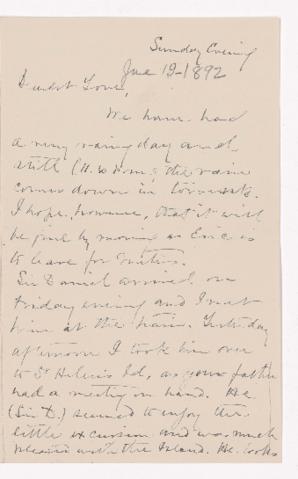 Sunday Evening
June 19-1892
Dearest Love,
We have had
a very rainy day and
still (10.30 P.m.) the rain
comes down in torrents.
I hope, however, that it will
be fine by morning as Eric is
to leave for
Sir Daniel arrived on
Friday evening and I met
him at the train. Yesterday
afternoon I took him over
to St Helen's Id, as your father
had a meeting on hand. He
(Sir D.) seemed to enjoy the
little excursion and was much
pleased with the Island. He looks